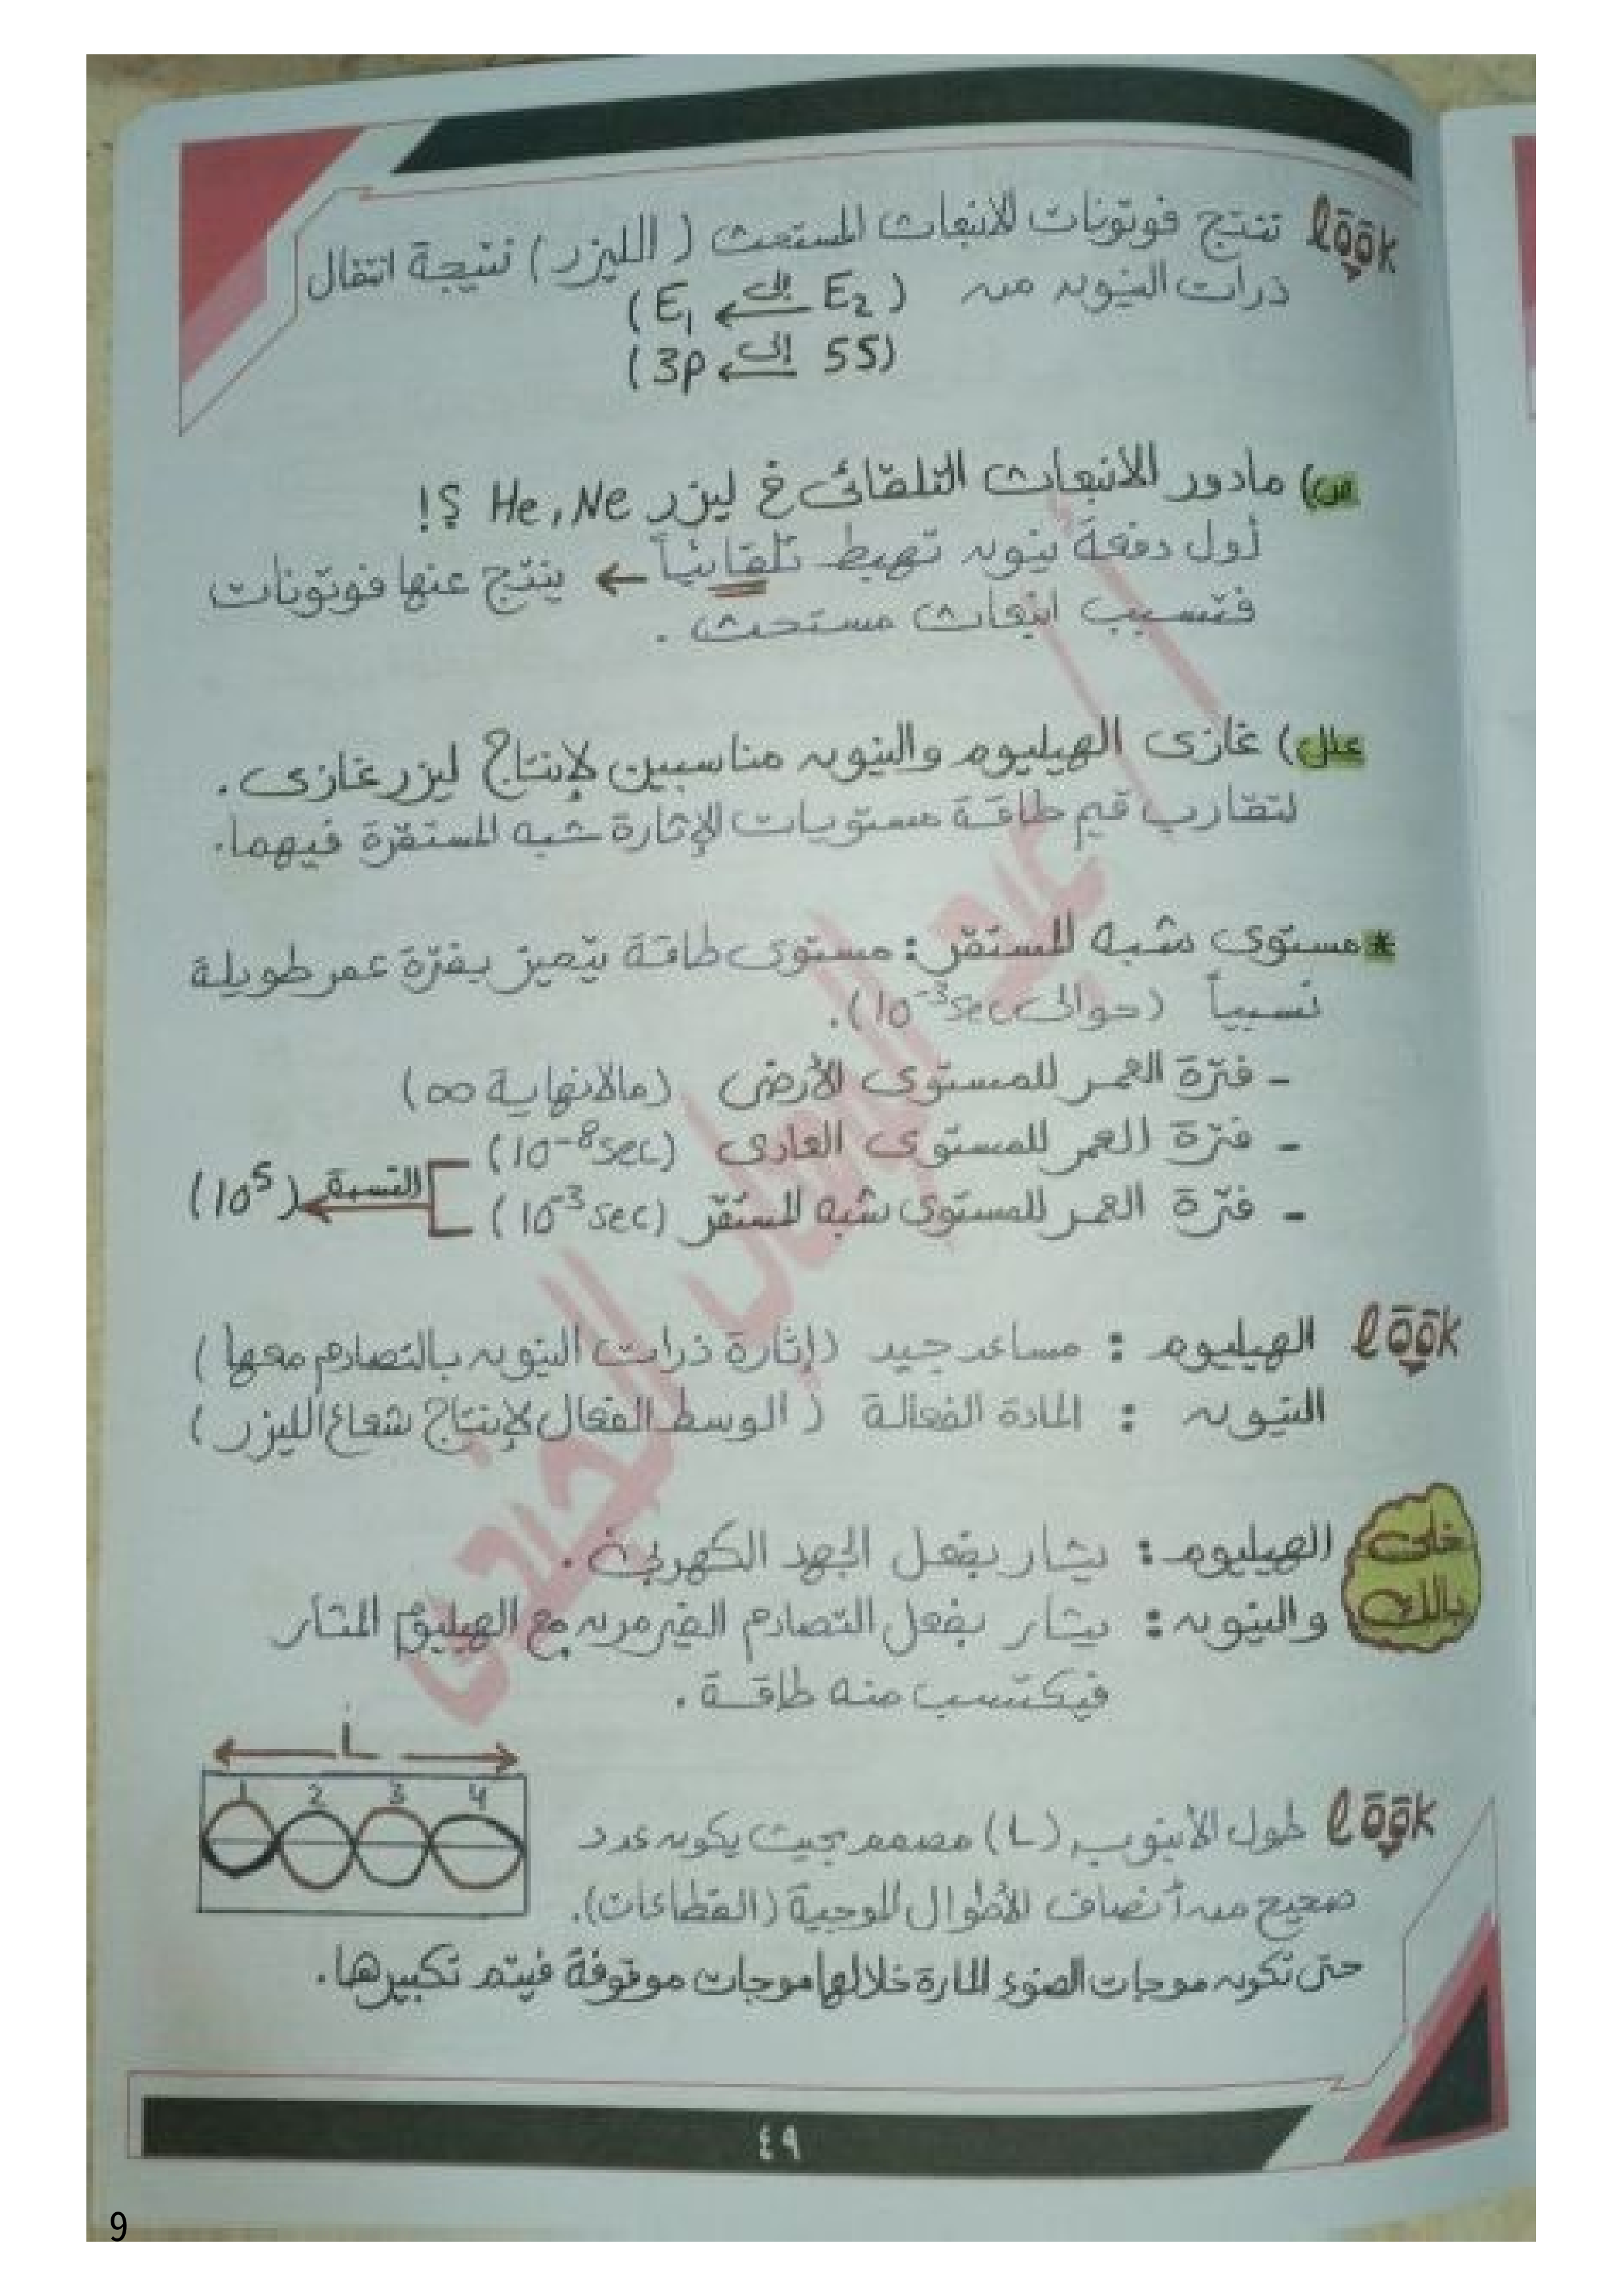 look تنتج فوتونات الانبعاث المستحث (الليزر) نتيجة انتقال
ذرات النيون من (E2 إلى E1)
(5S إلى 3P)
س) مادور الانبعاث التلقائى فى ليزر He, Ne ؟!
أول دفعة نيون تهبط تلقائياً ← ينتج عنها فوتونات
فتسبب انبعاث مستحث .
علل) غازى الهيليوم والنيون مناسبين لإنتاج ليزر غازى .
لتقارب قيم طاقة مستويات الإثارة شبه المستقرة فيهما .
* مستوى شبه المستقر : مستوى طاقة يتميز بفترة عمر طويلة
نسبياً (حوالى 10⁻³sec) .
- فترة العمر للمستوى الأرضى (مالانهاية ∞)
- فترة العمر للمستوى العادى (10⁻⁸sec)
النسبة (10⁵)
- فترة العمر للمستوى شبه المستقر (10⁻³sec)
look الهيليوم : مساعد جيد (إثارة ذرات النيون بالتصادم معها)
النيون : المادة الفعالة (الوسط الفعال لإنتاج شعاع الليزر)
خلى بالك
الهيليوم : يثار بفعل الجهد الكهربى .
والنيون : يثار بفعل التصادم الغير مرن مع الهيليوم المثار
فيكتسب منه طاقة .
L
1 2 3 4
look طول الأنبوب (L) مصمم بحيث يكون عدد
صحيح من أنصاف الأطوال الموجية (القطاعات) .
حتى تكون موجات الضوء المارة خلالها موجات موقوفة فيتم تكبيرها .
٤٩
9
أ / عبدالرحمن